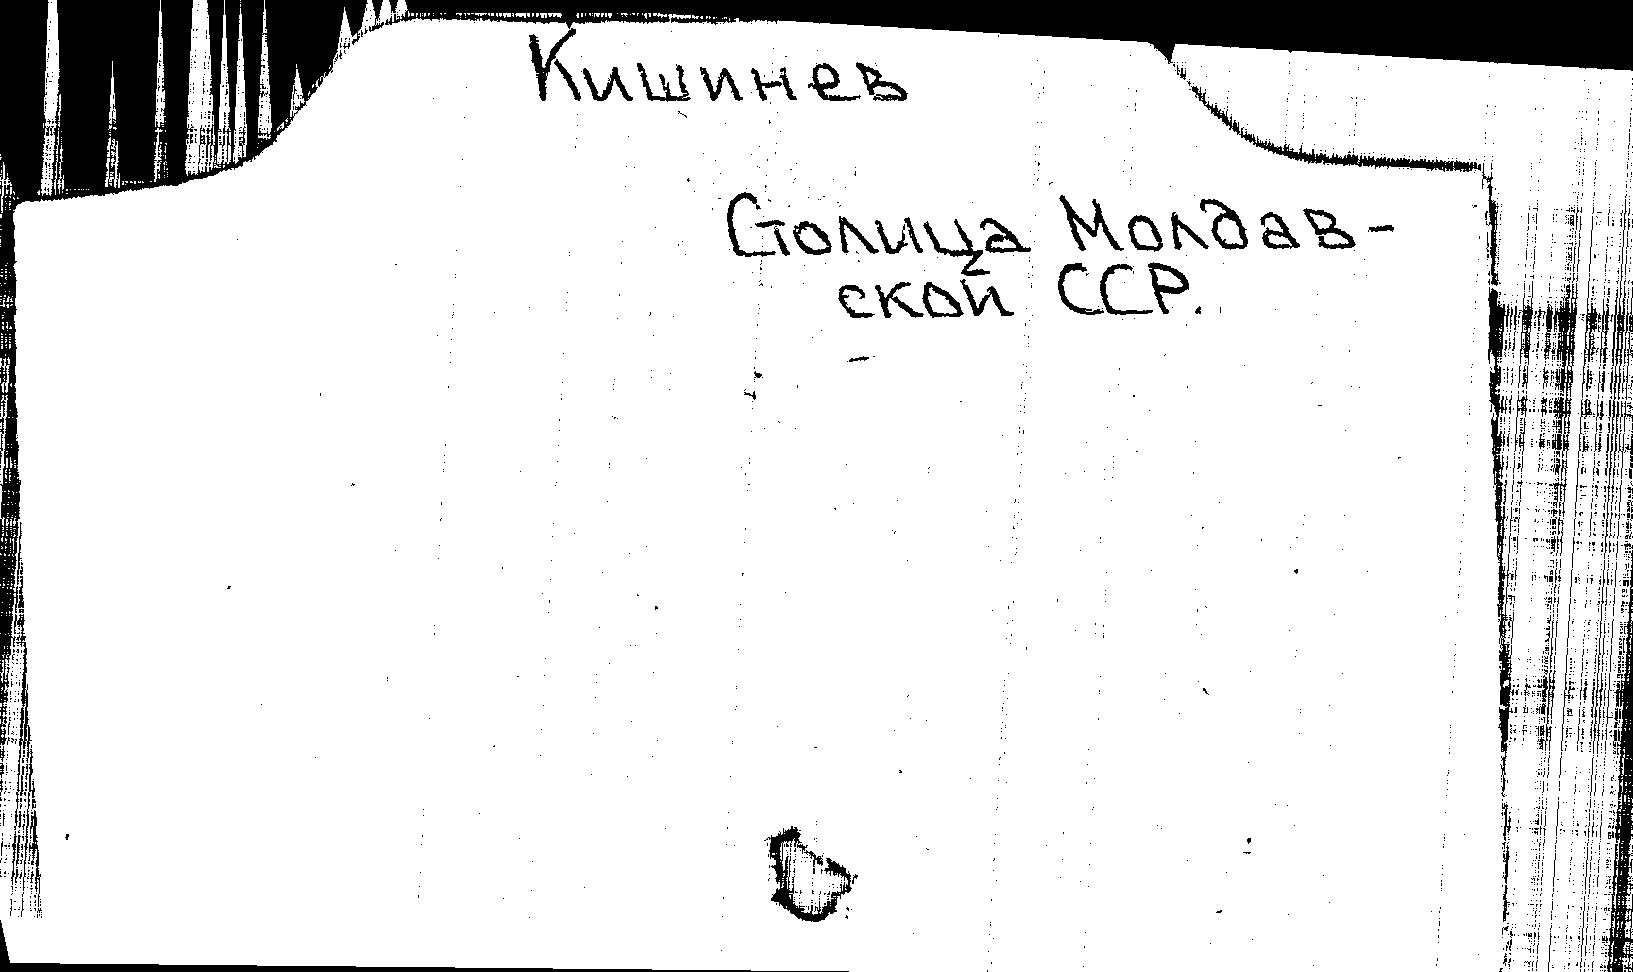 Кишинев
Столица Молдав-
ской ССР.